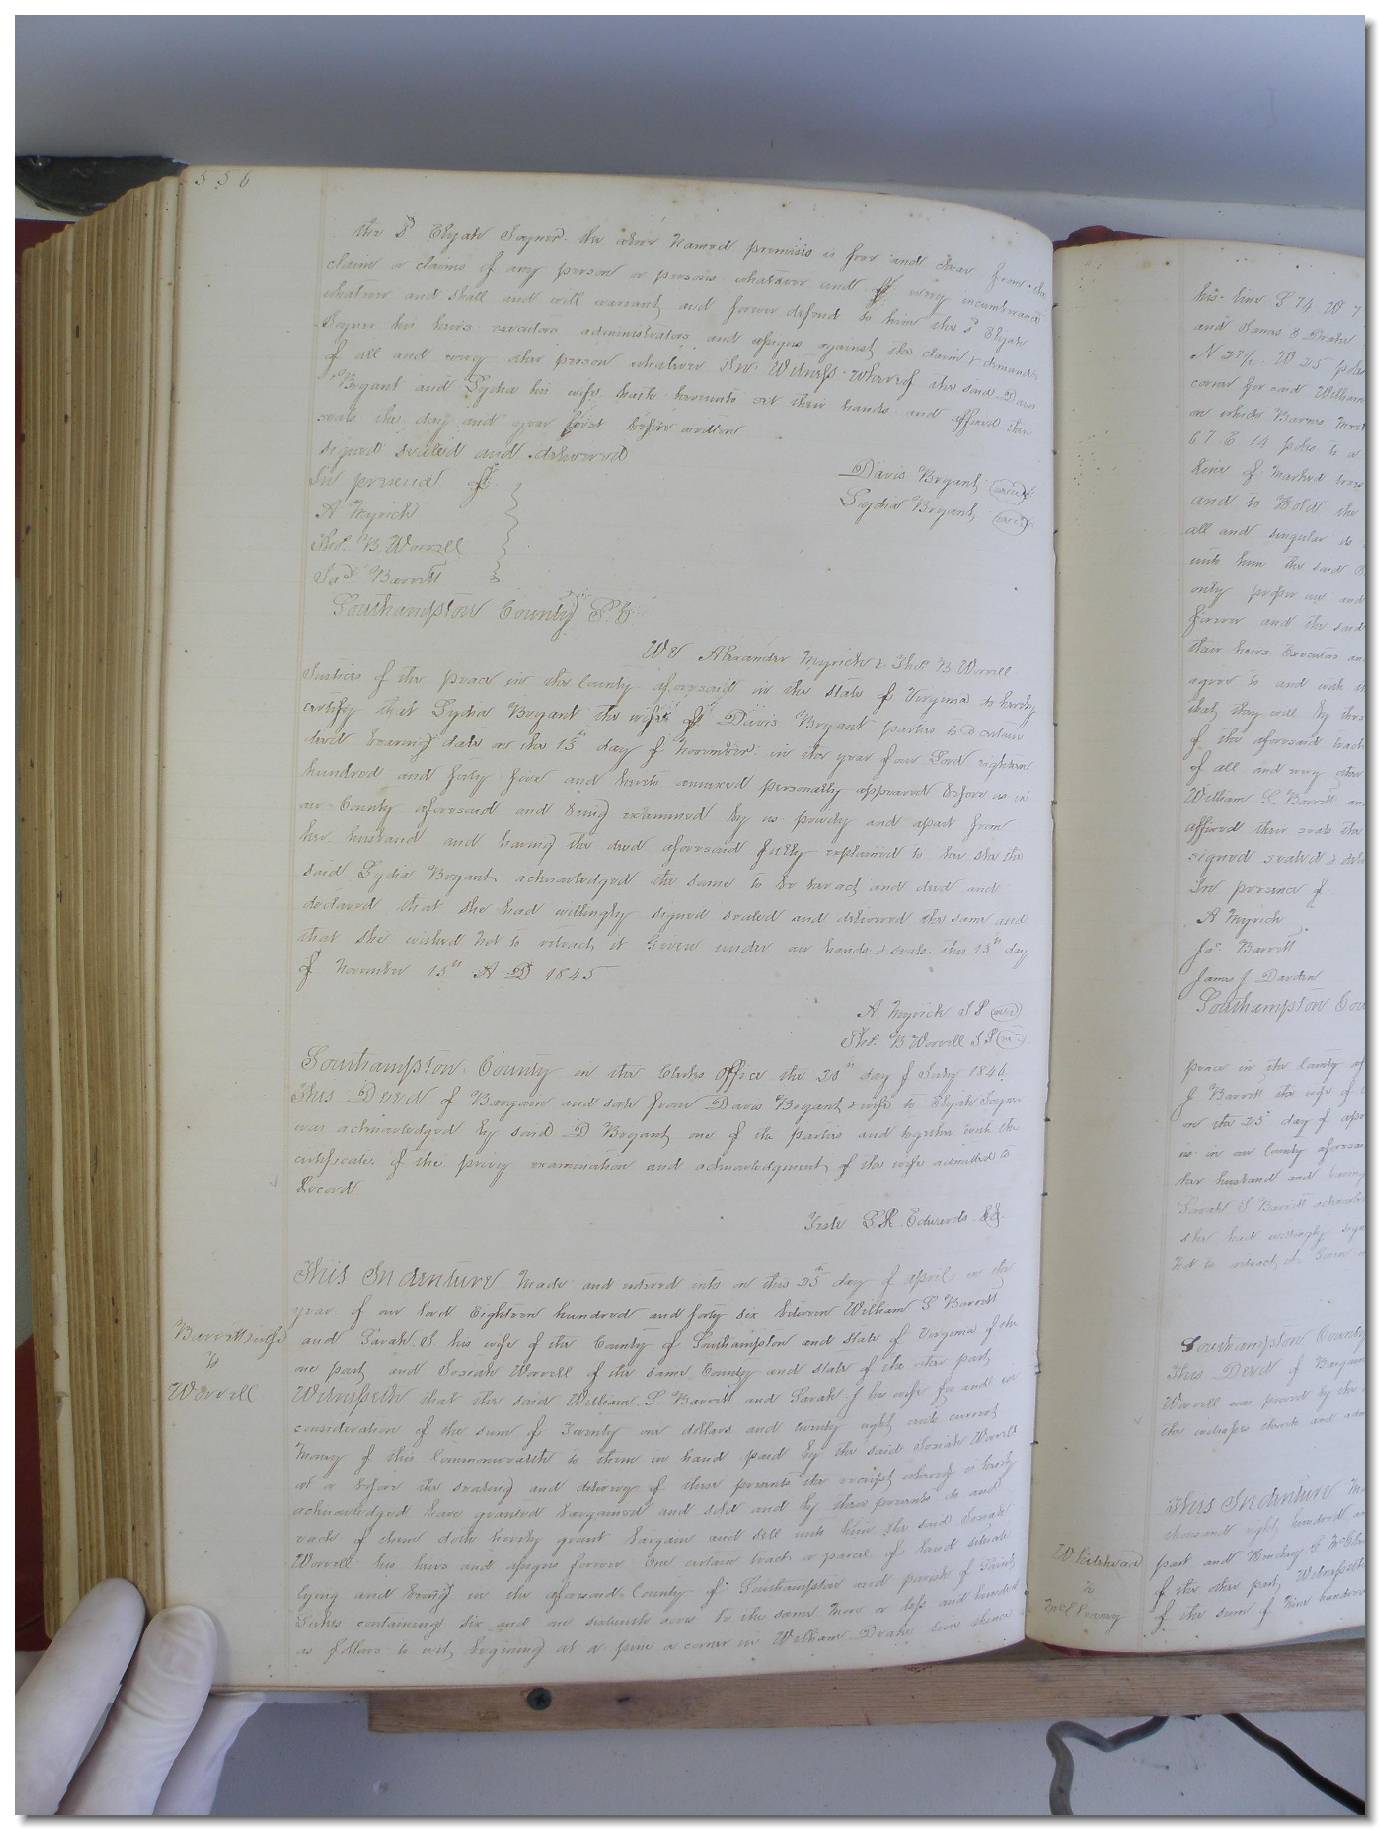 556
the sd Elijah Joyner the above Named premisis is free and clear from the
claim or claims of any person or persons whatever and of every incumberance
whatever and shall and will warrant and forever defend to him the sd Elijah
Joyner his heirs executors administrators and assigns against the claim & demands
of all and every other person whatever In Witness whereof the said Davis
Bryant and Lydia his wife hath hereunto set their hands and affixed their
seals the day and year first before written
signed sealed and delivered
In presence of
Davis Bryant (seal)
Lydia Bryant (seal)
A Myrick
Thos. B. Worrell
Jas Barrett
Southampton County
We Alexander Myrick & Thos. B Worrell
Justices of the peace in the County aforesaid in the State of Virginia do hereby
certify that Lydia Bryant the wife of Davis Bryant parties to a certain
deed bearing date on the 15th day of November in the year of our Lord eighteen
hundred and forty five and hereto annexed personally appeared before us in
our County aforesaid and being examined by us privily and apart from
her husband and having the deed aforesaid fully explained to her she the
said Lydia Bryant acknowledged the same to be her act and deed and
declared that she had willingly signed sealed and delivered the same and
that she wished Not to retract it Given under our hands & seals this 15th day
of November 15th A D 1845
A Myrick J P (seal)
Thos. B Worrell J P
Southampton County in the Clerks Office the 20th day of July 1846
This Deed of Bargain and sale from Davis Bryant & wife to Elijah Joyner
was acknowledged by said D Bryant one of the parties and together with the
certificate of the privy examination and acknowledgement of the wife admitted to
Record
Teste L. R. Edwards
This Indenture Made and entered into on this 25th day of april in the
year of our Lord Eighteen hundred and forty six between William S Barrett
Barrett & wife
to
Worrell
and Sarah J. his wife of the County of Southampton and State of Virginia of the
one part and Josiah Worrell of the same County and state of the other part
Witnesseth that the said William S Barrett and Sarah J his wife for and in
consideration of the sum of Twenty one dollars and twenty eight cents current
Money of this Commonwealth to them in hand paid by the said Josiah Worrell
at or before the sealing and delivery of these presents the receipt whereof is hereby
acknowledged have granted bargained and sold and by these presents do and
each of them doth hereby grant bargain and sell unto him the said Josiah
Worrell his heirs and assigns forever One certain tract or parcel of land situate
lying and being in the aforesaid County of Southampton and parish of Saint
Lukes containing six and one sixteenth acres be the same More or less and bounded
as follows to wit, begining at a pine a corner in William Drake line thence
his line S 74 W 7
and James E Drake
N 27 1/2 W 25 poles
corner for said William
on which Barnes
67 E 14 poles to a
line of Marked trees
and to Hold the
all and singular
unto him the said
only proper use and
forever and the said
their heirs Executors
agree to and with
that they will by these
of the aforesaid tract
of all and every other
William S Barrett
affixed their seals the
signed sealed &
In presence of
A Myrick
Jas. Barrett
James J Darden
Southampton
peace in the County
J Barrett the wife of
on the 25 day of
us in our County
her husband and having
Sarah J Barrett
she had willingly
Not to retract it Given
Southampton County
This Deed of
Worrell was proved by the
the witnesses thereto and
This Indenture
thousand eight hundred
Whitehead
to
part and
of the other part Witnesseth
of the sum of Nine hundred